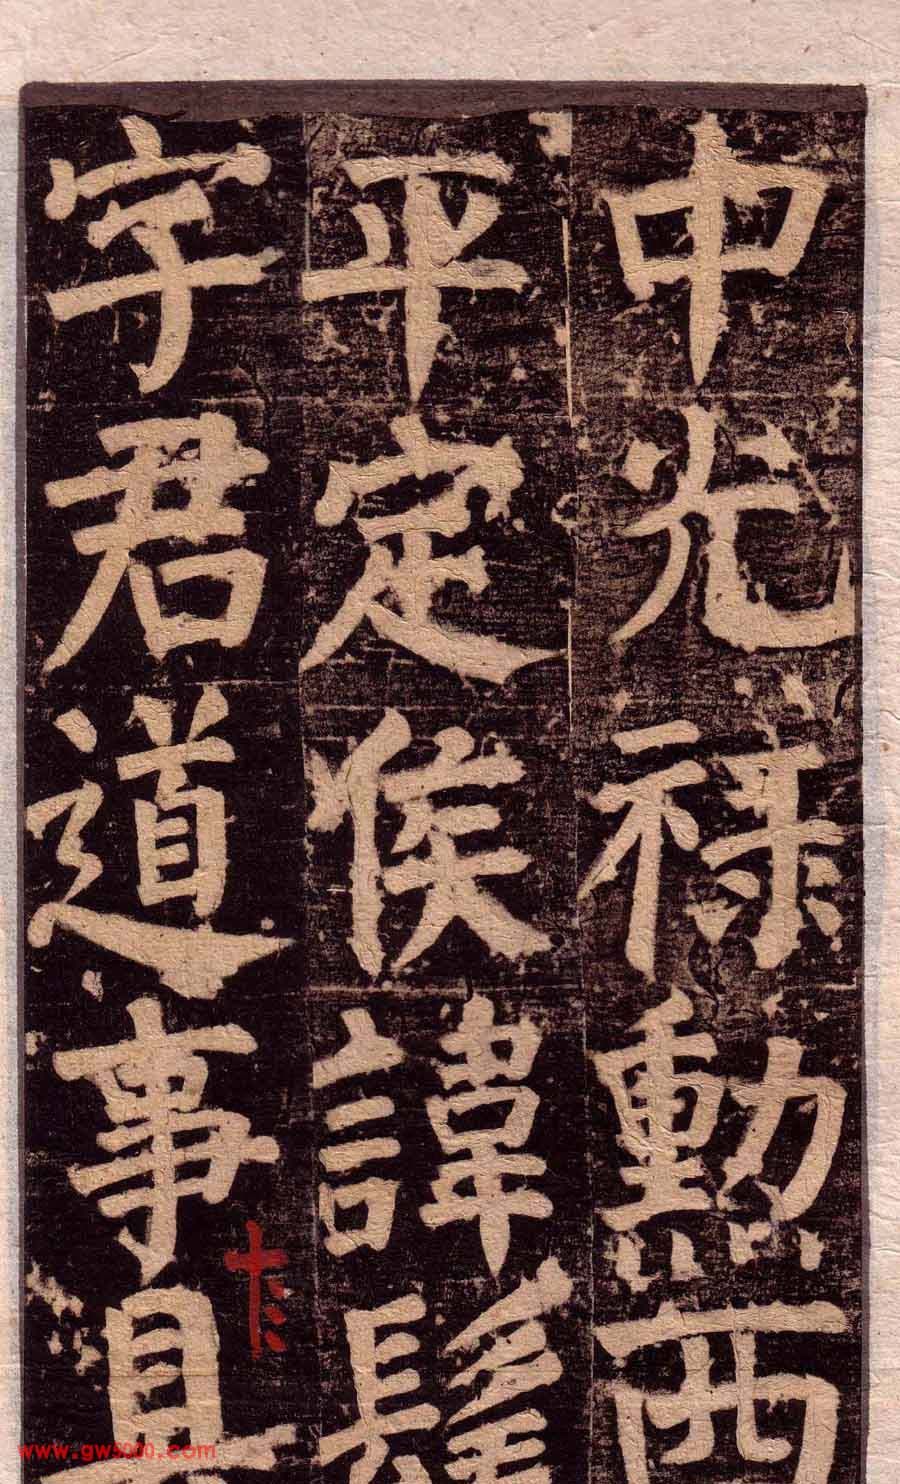 中光祿勲西
平定侯諱髦
字君道事具
www.gw5000.com